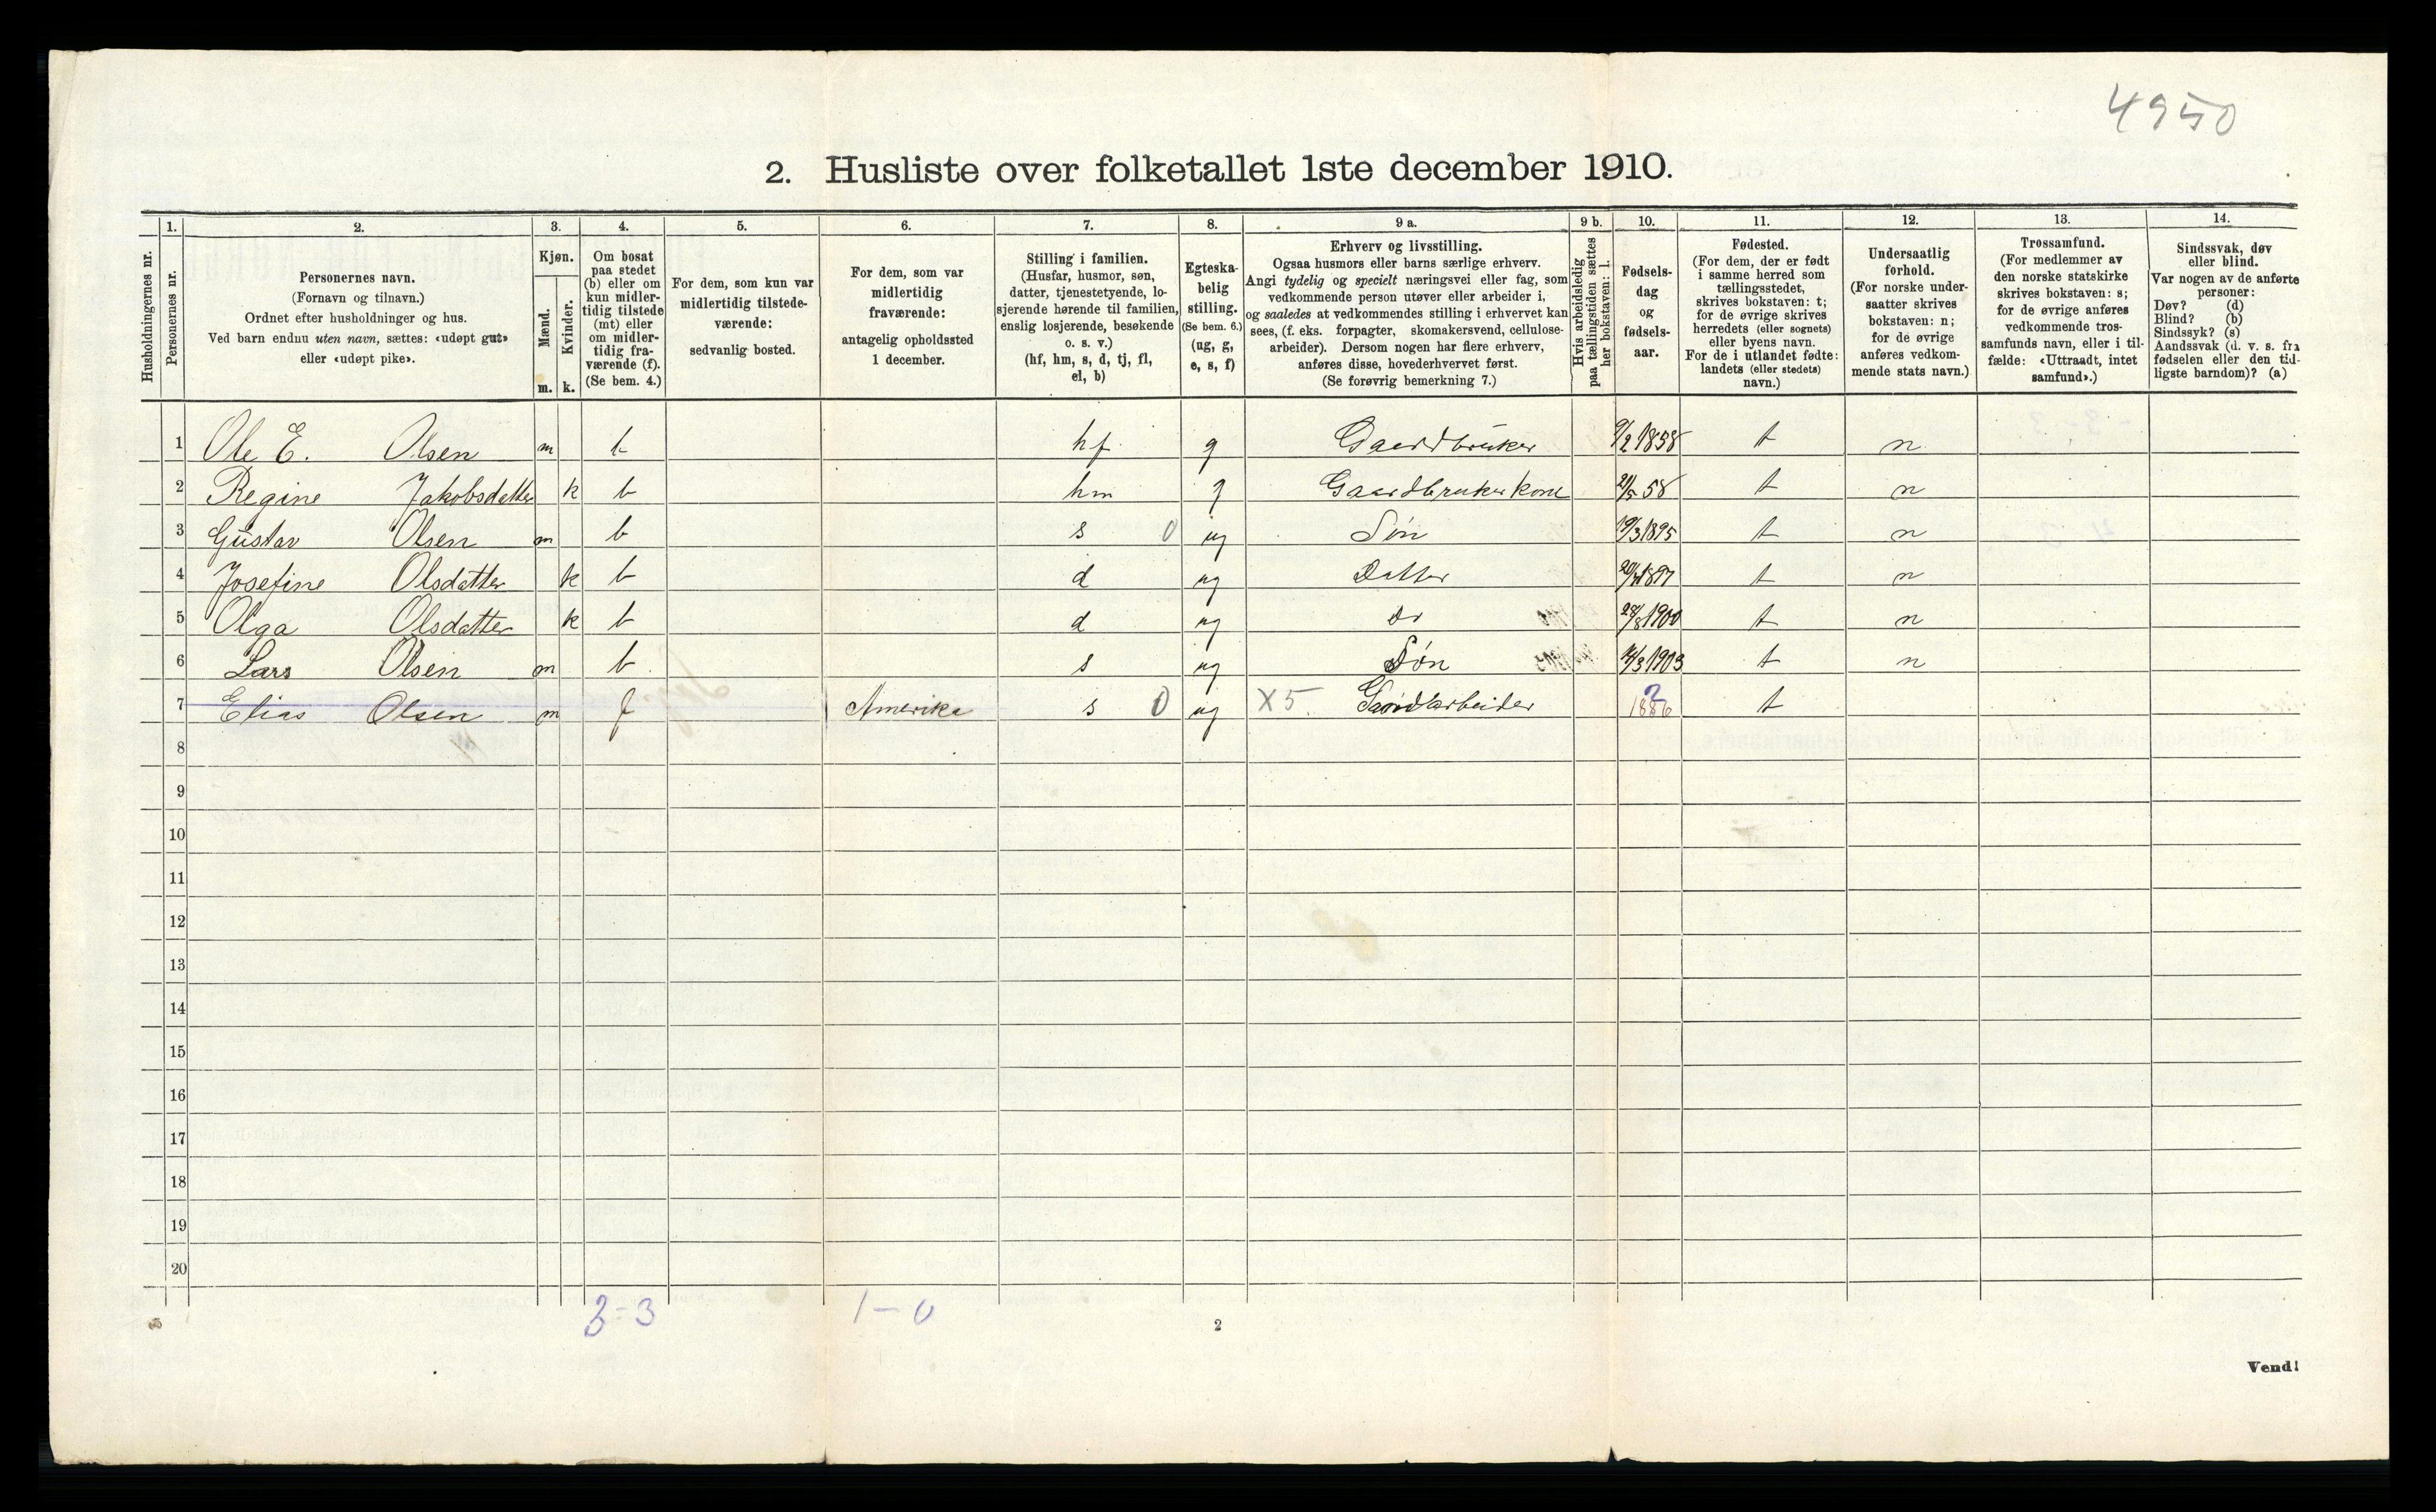 4950
2. Husliste over folketallet 1ste december 1910.
Husholdningernes nr.
1.
Personernes nr.
2.
Personernes navn.
(Fornavn og tilnavn.)
Ordnet efter husholdninger og hus.
Ved barn endnu uten navn, sættes: «udøpt gut»
eller «udøpt pike».
3.
Kjøn.
Mænd.
Kvinder.
m. k.
4.
Om bosat
paa stedet
(b) eller om
kun midler-
tidig tilstede
(mt) eller
om midler-
tidig fra-
værende (f).
(Se bem. 4.)
5.
For dem, som kun var
midlertidig tilstede-
værende:
sedvanlig bosted.
6.
For dem, som var
midlertidig
fraværende:
antagelig opholdssted
1 december.
7.
Stilling i familien.
(Husfar, husmor, søn,
datter, tjenestetyende, lo-
sjerende hørende til familien,
enslig losjerende, besøkende
o. s. v.)
(hf, hm, s, d, tj, fl,
el, b)
8.
Egteska-
belig
stilling.
(Se bem. 6.)
(ug, g,
e, s, f)
9 a.
Erhverv og livsstilling.
Ogsaa husmors eller barns særlige erhverv.
Angi tydelig og specielt næringsvei eller fag, som
vedkommende person utøver eller arbeider i,
og saaledes at vedkommendes stilling i erhvervet kan
sees, (f. eks. forpagter, skomakersvend, cellulose-
arbeider). Dersom nogen har flere erhverv,
anføres disse, hovederhvervet først.
(Se forøvrig bemerkning 7.)
9 b.
Hvis arbeidsledig
paa tællingstiden sættes
her bokstaven: l.
10.
Fødsels-
dag
og
fødsels-
aar.
11.
Fødested.
(For dem, der er født
i samme herred som
tællingsstedet,
skrives bokstaven: t;
for de øvrige skrives
herredets (eller sognets)
eller byens navn.
For de i utlandet fødte:
landets (eller stedets)
navn.)
12.
Undersaatlig
forhold.
(For norske under-
saatter skrives
bokstaven: n;
for de øvrige
anføres vedkom-
mende stats navn.)
13.
Trossamfund.
(For medlemmer av
den norske statskirke
skrives bokstaven: s;
for de øvrige anføres
vedkommende tros-
samfunds navn, eller i til-
fælde: «Uttraadt, intet
samfund».)
14.
Sindssvak, døv
eller blind.
Var nogen av de anførte
personer:
Døv? (d)
Blind? (b)
Sindssyk? (s)
Aandssvak (d. v. s. fra
fødselen eller den tid-
ligste barndom)? (a)
1 Ole E. Olsen m b hf g Gaardbruker 9/2 1858 t n
2 Regine Jakobsdatter k b hm g Gaardbrukerkone 21/5 58 t n
3 Gustav Olsen m b s 0 ug Søn 19/3 1895 t n
4 Josefine Olsdatter k b d ug Datter 1897 t n
5 Olga Olsdatter k b d ug Do 28/8 1900 t n
6 Lars Olsen m b s ug Søn 1903 t n
7 Elias Olsen m f Amerika s 0 ug X5 Gaardarbeider ? 1886 t
8
9
10
11
12
13
14
15
16
17
18
19
20
3-3 1-0
2
Vend!